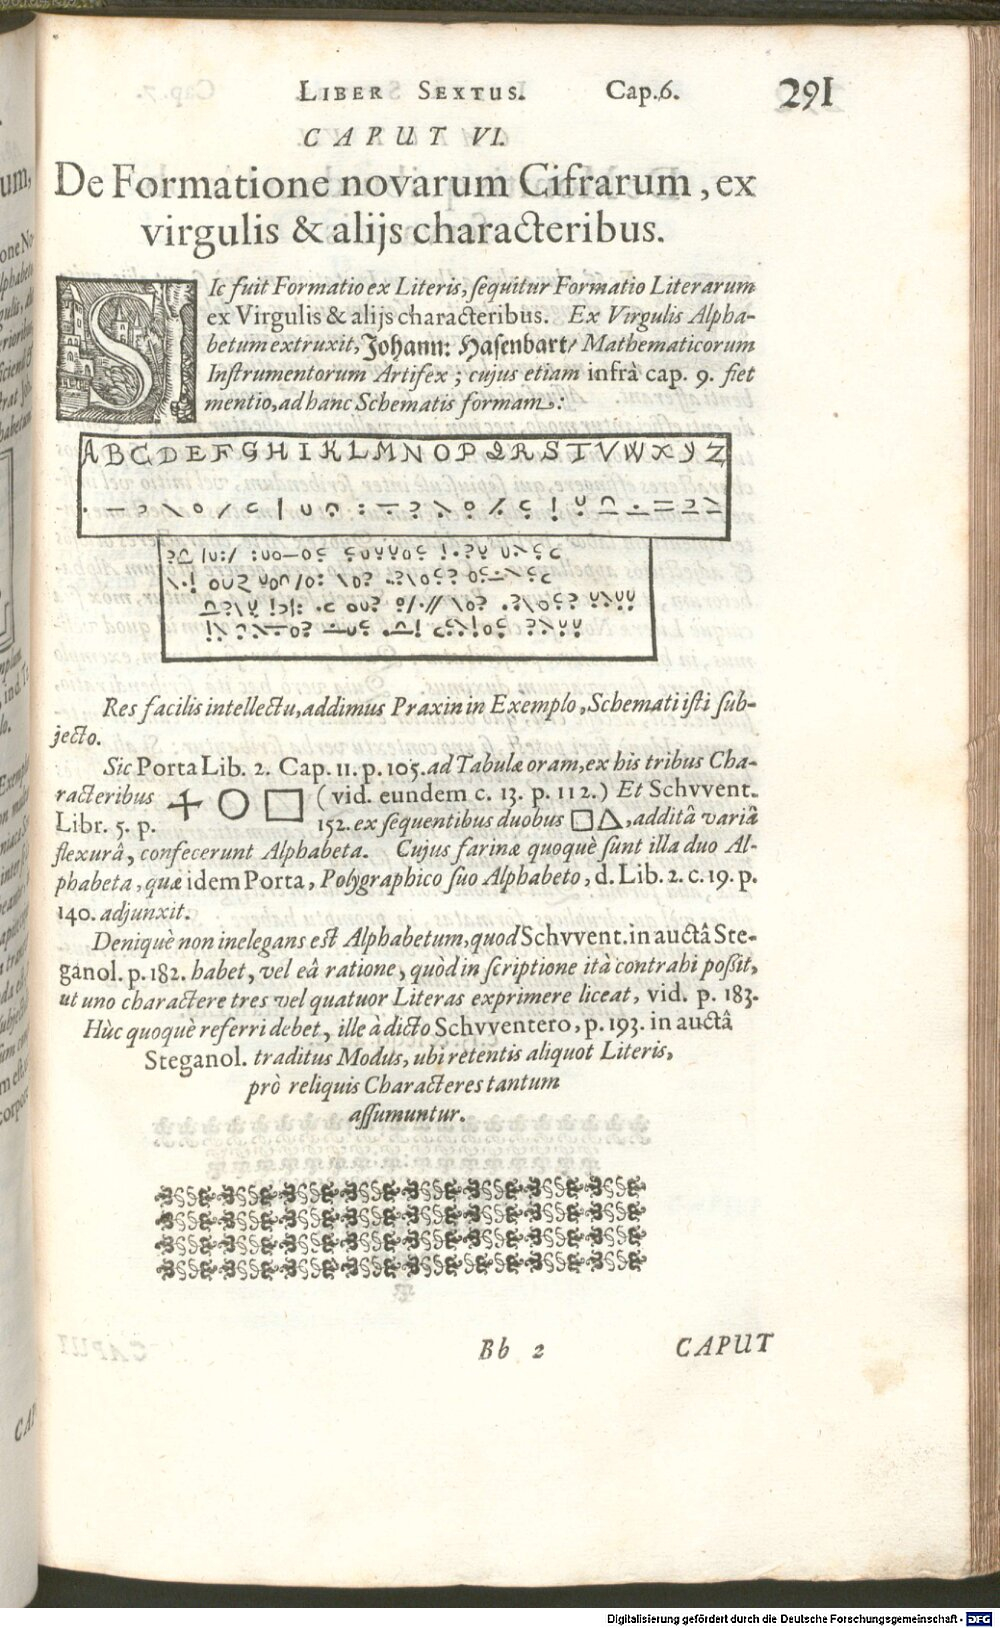 LIBER SEXTUS. Cap.6. 291
CAPUT VI.
De Formatione novarum Cifrarum, ex
virgulis & alijs characteribus.
SIc fuit Formatio ex Literis, sequitur Formatio Literarum
ex Virgulis & alijs characteribus. Ex Virgulis Alpha-
betum extruxit, Johann: Hasenbart/ Mathematicorum
Instrumentorum Artifex; cujus etiam infrà cap. 9. fiet
mentio, ad hanc Schematis formam.:
A B C D E F G H I K L M N O P Q R S T V W X Y Z
Res facilis intellectu, addimus Praxin in Exemplo, Schemati isti sub-
jecto.
Sic Porta Lib. 2. Cap. 11. p. 105. ad Tabulæ oram, ex his tribus Cha-
racteribus + ○ □ (vid. eundem c. 13. p. 112.) Et Schvvent.
Libr. 5. p. 152. ex sequentibus duobus □△, additâ variâ
flexurâ, confecerunt Alphabeta. Cujus farinæ quoquè sunt illa duo Al-
phabeta, quæ idem Porta, Polygraphico suo Alphabeto, d. Lib. 2. c. 19. p.
140. adjunxit.
Deniquè non inelegans est Alphabetum, quod Schvvent. in auctâ Ste-
ganol. p. 182. habet, vel eâ ratione, quòd in scriptione ità contrahi poßit,
ut uno charactere tres vel quatuor Literas exprimere liceat, vid. p. 183.
Hùc quoquè referri debet, ille à dicto Schvventero, p. 193. in auctâ
Steganol. traditus Modus, ubi retentis aliquot Literis,
prò reliquis Characteres tantum
assumuntur.
Bb 2 CAPUT
Digitalisierung gefördert durch die Deutsche Forschungsgemeinschaft - DFG